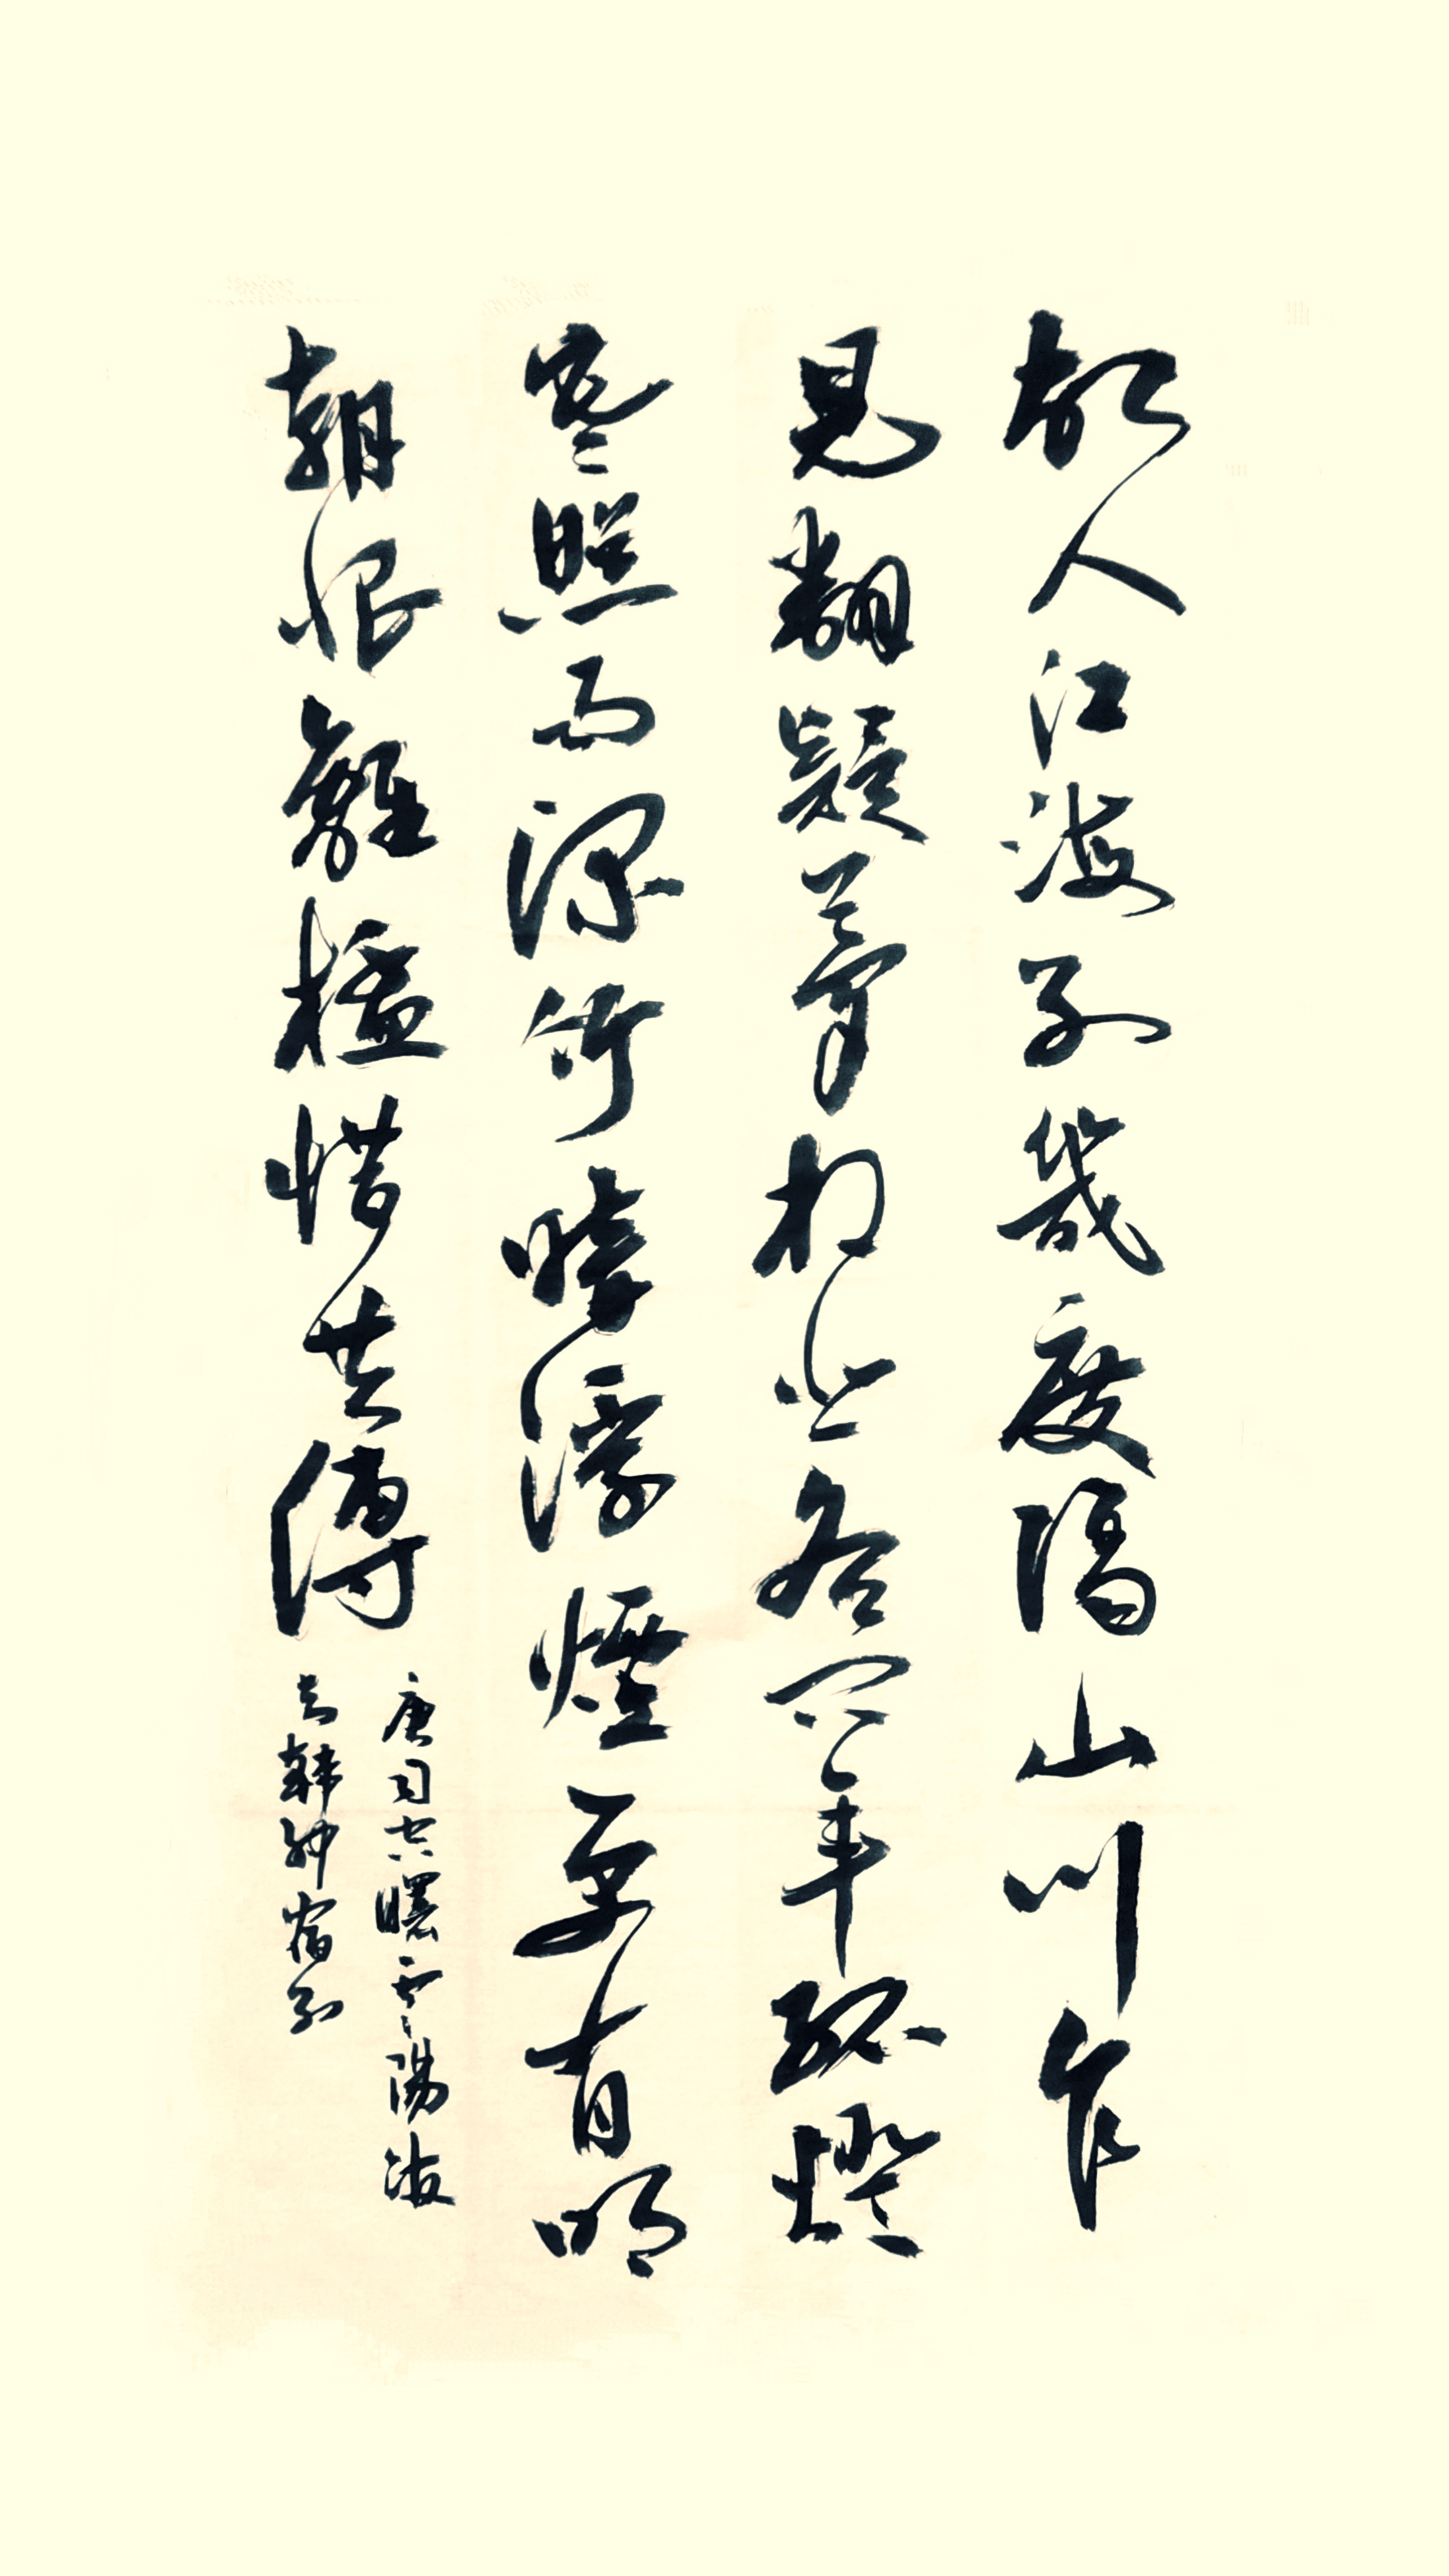 故人江海別幾度隔山川乍
見翻疑夢相悲各問年孤燈
寒照雨深竹暗浮煙更有明
朝恨離杯惜共傳
唐司空曙雲陽館
與韓紳宿別